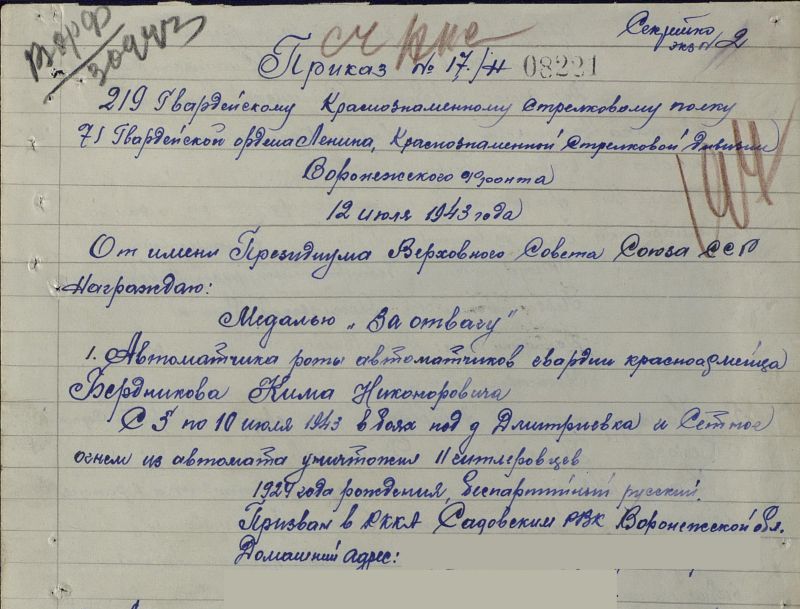 Секретно
экз № 2
Приказ № 17/н 08221
219 Гвардейскому Краснознаменному стрелковому полку
71 Гвардейской ордена Ленина, Краснознаменной стрелковой дивизии
Воронежского фронта
12 июля 1943 года
От имени Президиума Верховного Совета Союза ССР
Награждаю:
Медалью „За отвагу"
1. Автоматчика роты автоматчиков гвардии красноармейца
Бердникова Кима Никоноровича
С 5 по 10 июля 1943 в боях под д Дмитриевка и Сетное
огнем из автомата уничтожил 11 гитлеровцев
1924 года рождения, беспартийный русский.
Призван в РККА Садовским РВК Воронежской обл.
Домашний адрес: